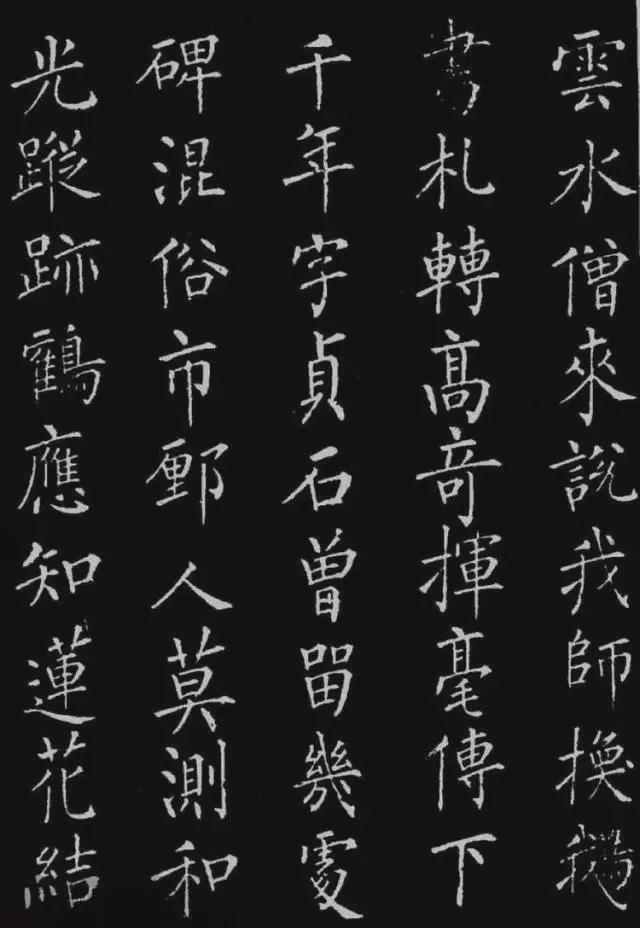 雲水僧來說我師換鵝
書札轉髙竒揮毫傳下
千年字貞石曽留幾處
碑混俗市鄽人莫測和
光蹤跡鶴應知蓮花結